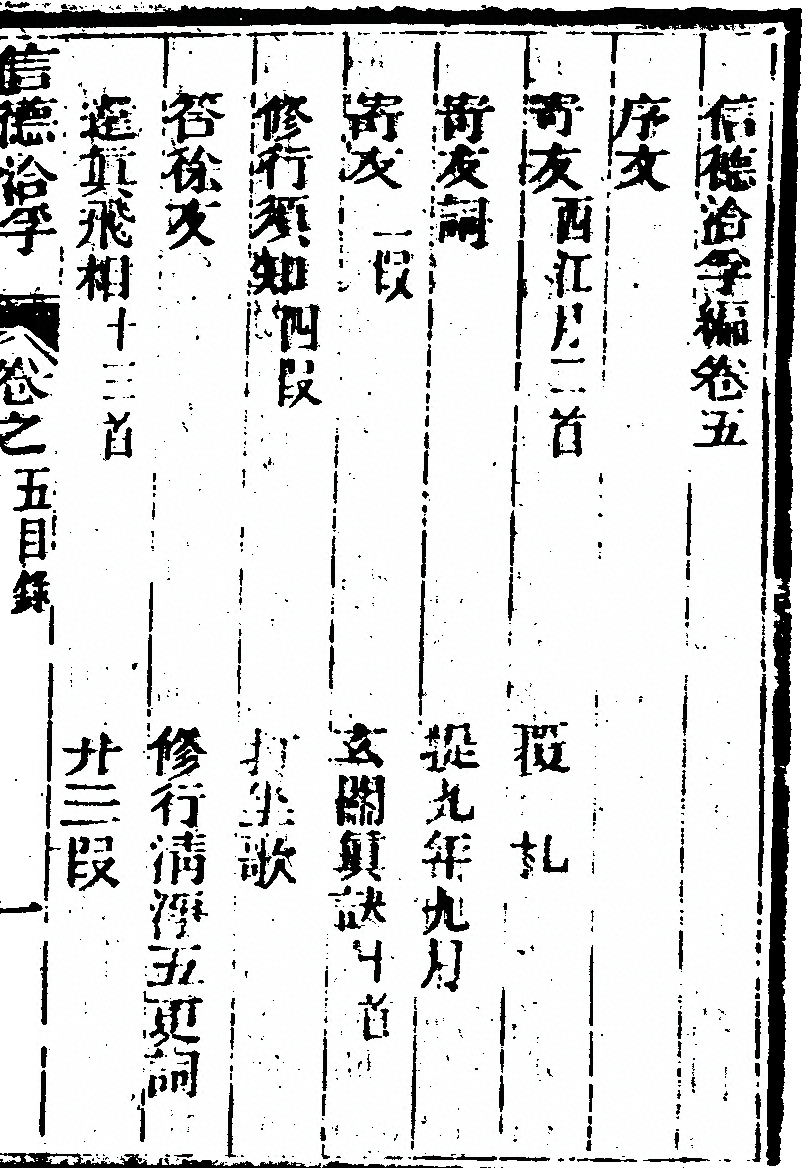 信德洽孚編卷五
序文
寄友 西江月二首 札
寄友詞 九年九月
寄友 一段 玄關眞訣 首
修行須知 四段 打坐歌
答徐友 修行清淨五更詞
眞飛相 十三首 廿三段
信德洽孚 卷之五目錄 一